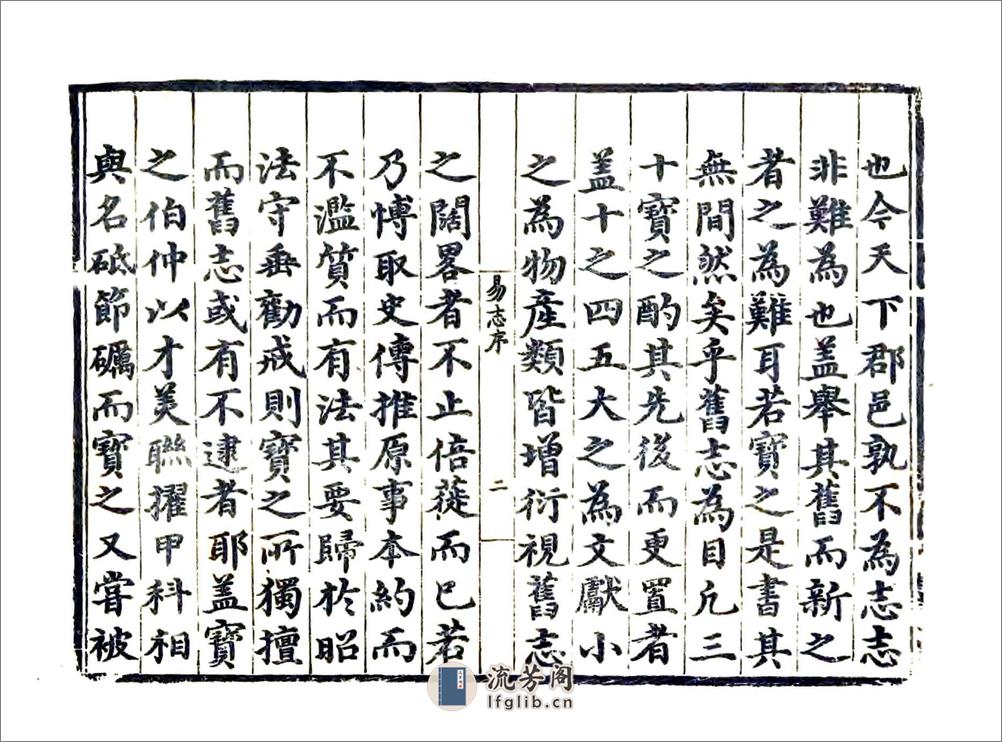 也今天下郡邑孰不為志志
非難為也盖舉其舊而新之
者之為難耳若寶之是書其
無間然矣乎舊志為目凢三
十寶之酌其先後而更置者
盖十之四五大之為文獻小
之為物產類皆增衍視舊志
易志序
二
之闊畧者不止倍蓰而已若
乃慱取史傳推原事本約而
不濫質而有法其要歸於昭
法守垂勸戒則寶之所獨擅
而舊志或有不逮者耶盖寶
之伯仲以才美聯擢甲科相
與名砥節礪而寶之又甞被
流芳阁
lfglib.cn